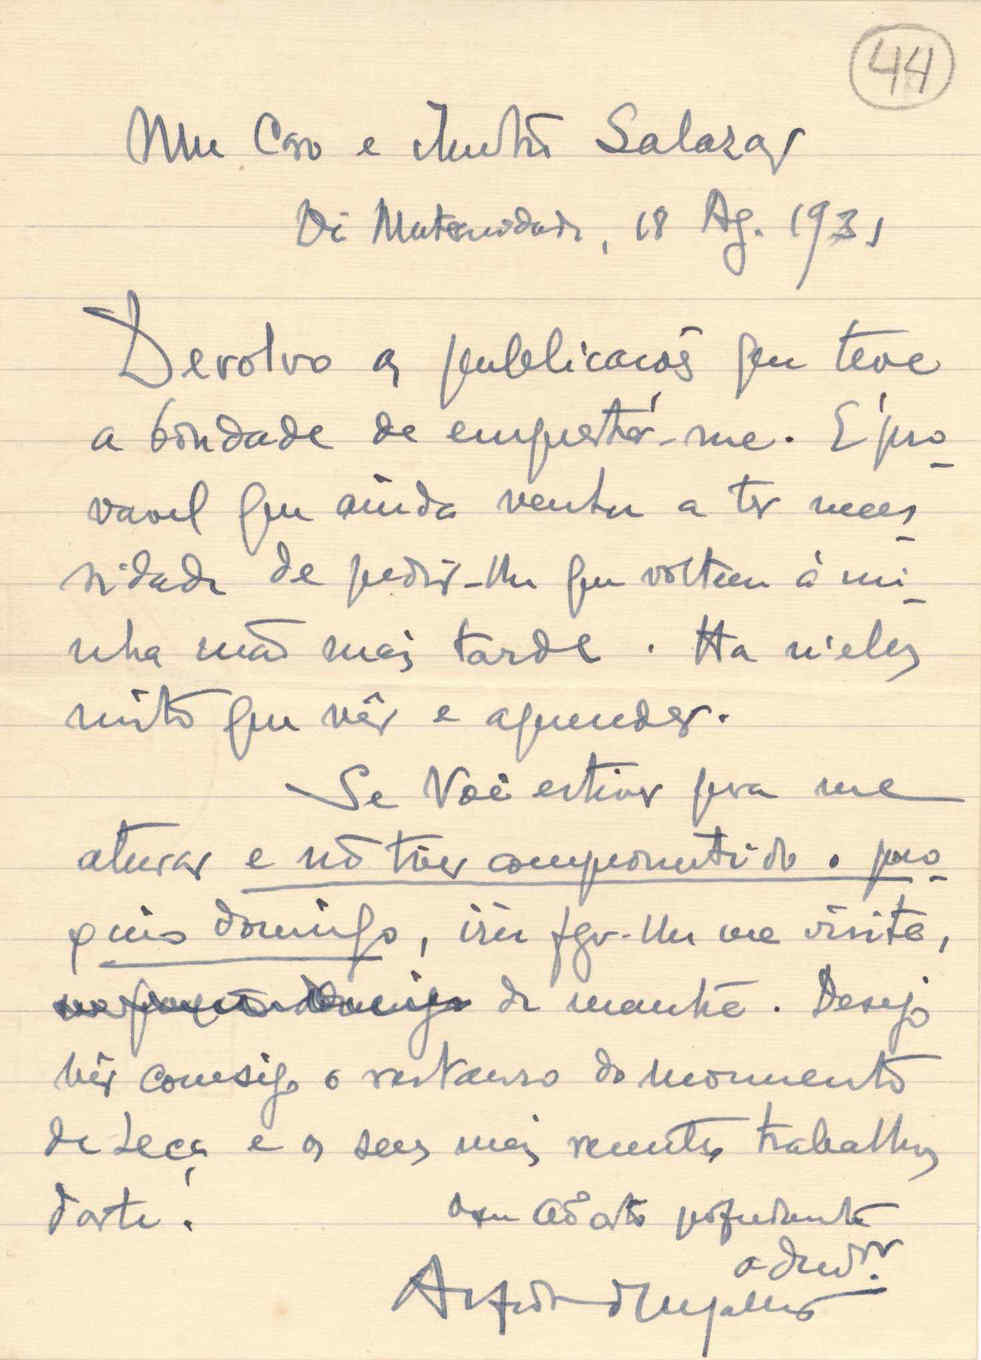 44
Meu Caro e ilustre Salazar
Da Maternidade, 18 Ag. 1931
Devolvo as publicacoẽs que teve
a bondade de emprestar-me. É pro-
vavel que ainda venha a ter neces-
sidade de pedir-lhe que voltem á mi-
nha mão mais tarde. Ha n'elas
muito que vêr e aprender.
Se Você estiver pera me
aturar e não tiver compromettido o pro-
ximo domingo, irei fazer-lhe uma visita,
de manhã. Desejo
vêr consigo o restauro do monumento
de Leça e os seus mais recentes trabalhos
d'arte.
o seu
admor.
Alfredo de Magalhães